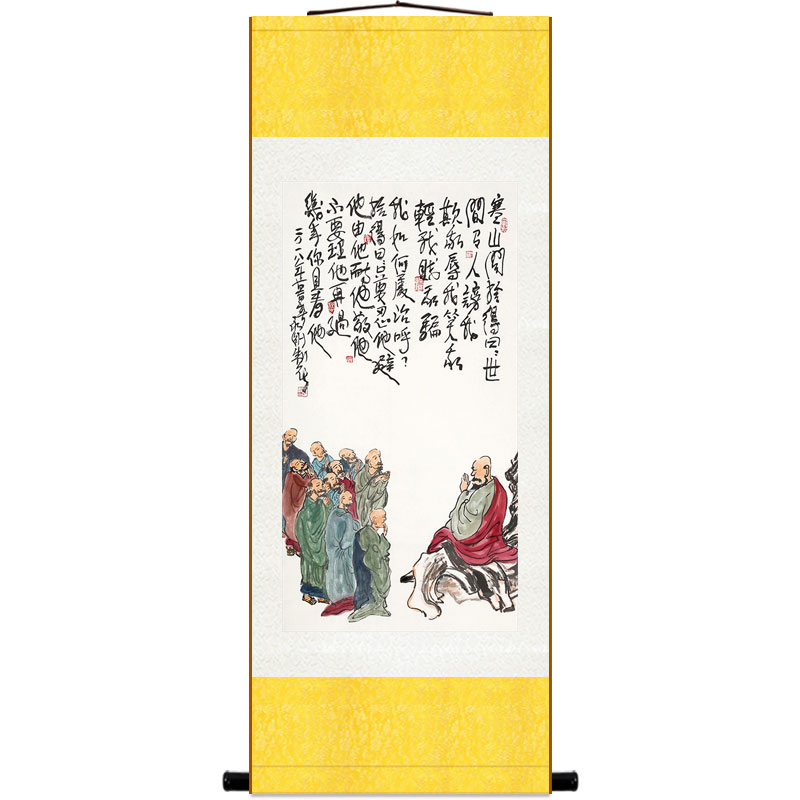 寒山問拾得曰：世
間有人謗我
欺我辱我笑我
輕我賤我騙
我如何處治呼？
拾得曰：只要忍他避
他由他耐他敬他
不要理他再過
幾年你且看他
二〇一八年